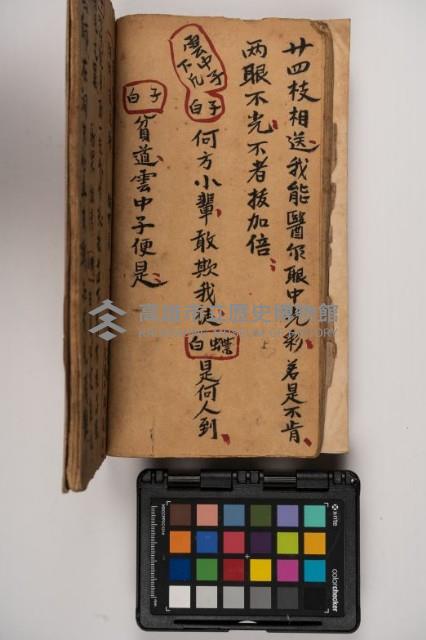 廿四枝相送我能醫尔眼中光彩若是不肯
两眼不光不者拔加倍
雲中子
下凡
白子
何方小輩敢欺我徒
白蝶
是何人到
白子
貧道雲中子便是
高雄市立歷史博物館
KAOHSIUNG MUSEUM OF HISTORY
x-rite
colorchecker